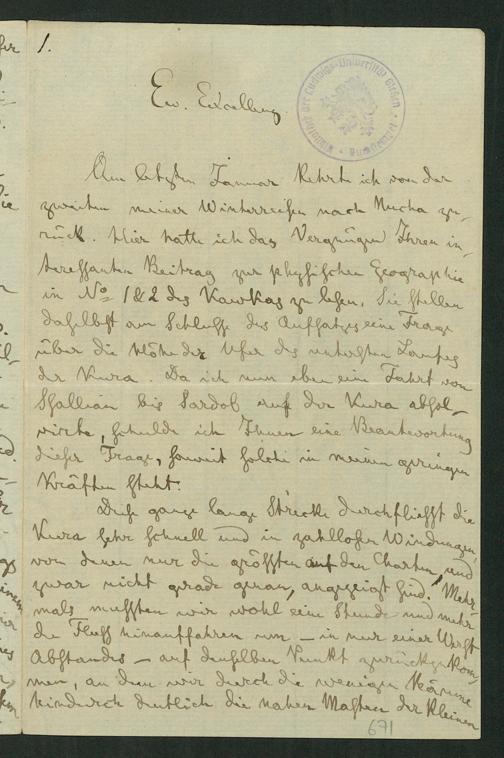 1.
Ew. Excellenz
Am letzten Januar kehrte ich von der
zweiten meiner Winterreisen nach Nucha zu-
rück. Hier hatte ich das Vergnügen Ihren in-
teressanten Beitrag zur physischen Geographie
in No 1&2 des Kawkas zu lesen. Sie stellen
daselbst am Schlusse des Aufsatzes eine Frage
über die Höhe der Ufer des untersten Laufes
der Kura. Da ich nun eben eine Fahrt von
bis auf der Kura absol-
virte, schulde ich Ihnen eine Beantwortung
dieser Frage, soweit solche in meinen geringen
Kräften steht.
Diese ganze lange Strecke durchfliesst die
Kura sehr schnell und in zahllosen Windungen,
von denen nur die grössten auf den Charten, und
zwar nicht grade genau, angezeigt sind. Mehr-
mals mussten wir wohl eine Stunde und mehr
den Fluss hinauffahren um – in nur einer Werst
Abstandes – auf denselben Punkt zurückzukom-
men, an dem wir durch die wenigen Bäume
hindurch deutlich die nahen Masten der kleinen
671